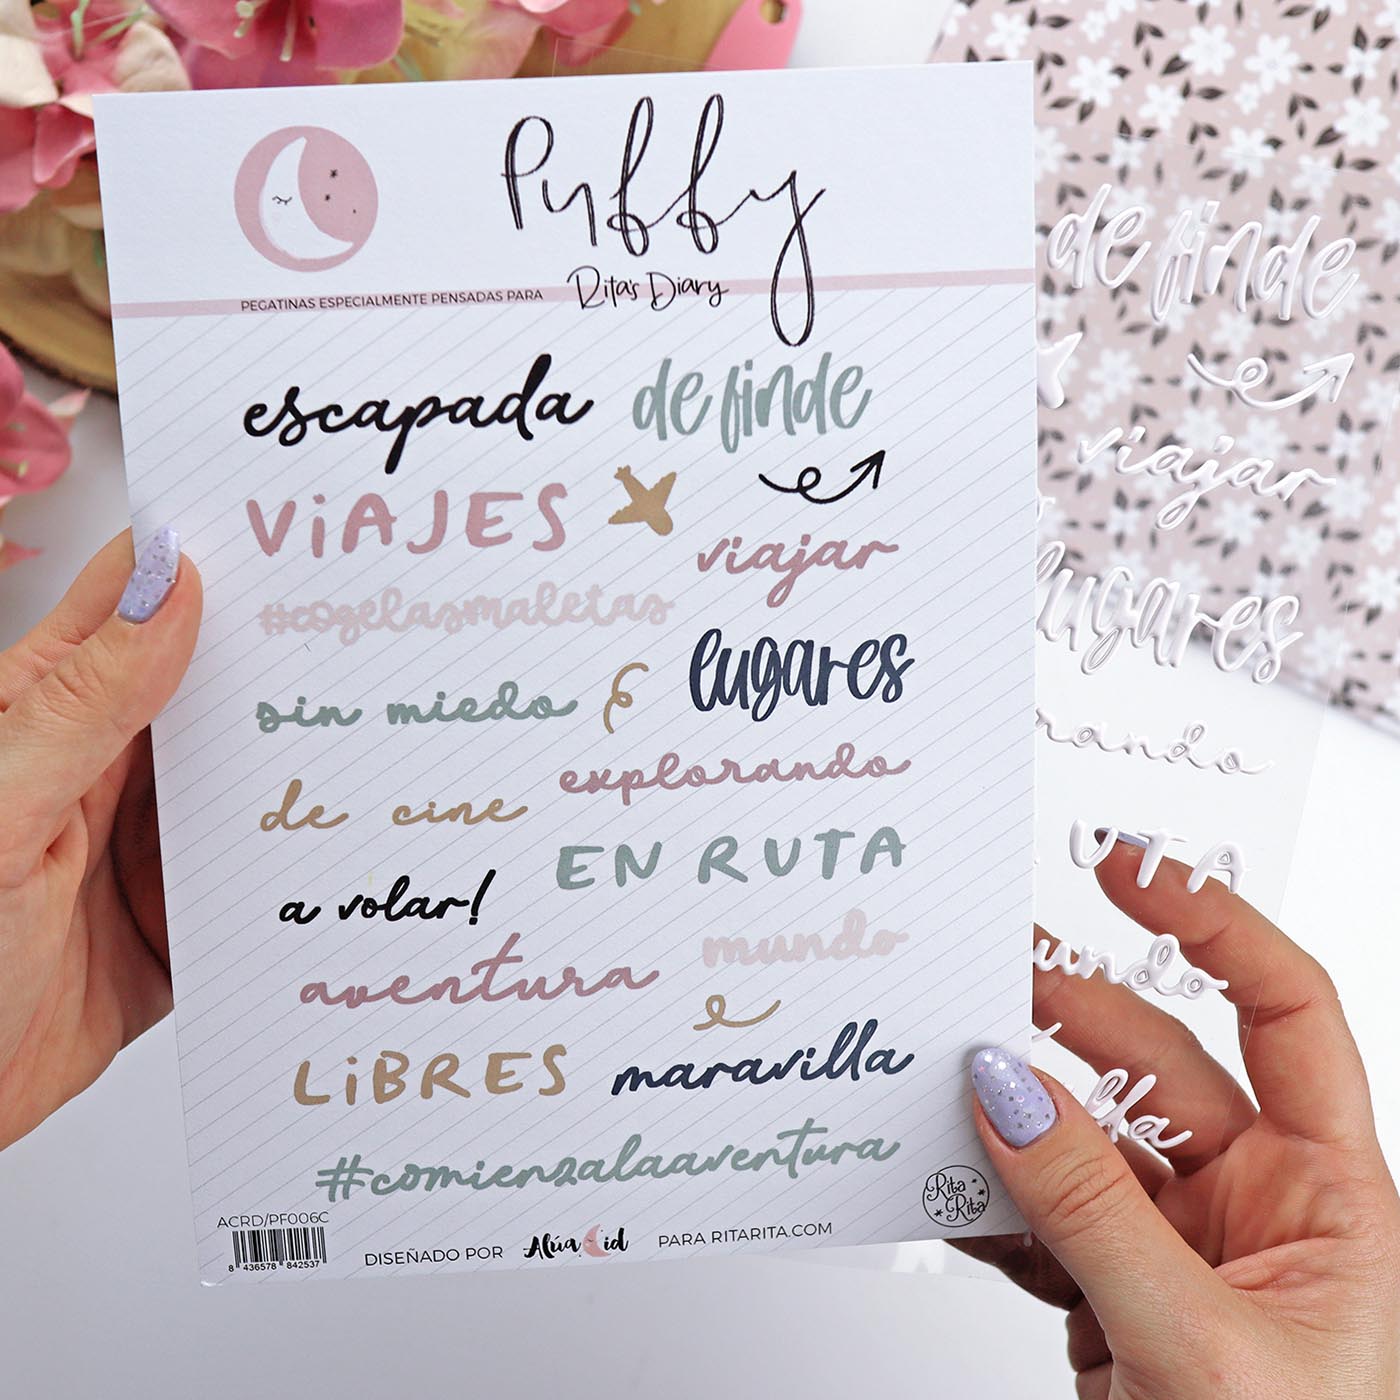 Puffy
PEGATINAS ESPECIALMENTE PENSADAS PARA Rita's Diary
escapada de finde
VIAJES
viajar
#cogelasmaletas
lugares
sin miedo
explorando
de cine
EN RUTA
a volar!
mundo
aventura
LIBRES
maravilla
#comienzalaaventura
ACRD/PF006C
8 436578 842537
DISEÑADO POR Alúa Cid PARA RITARITA.COM
Rita
Rita
de finde
viajar
lugares
rando
UTA
undo
illa